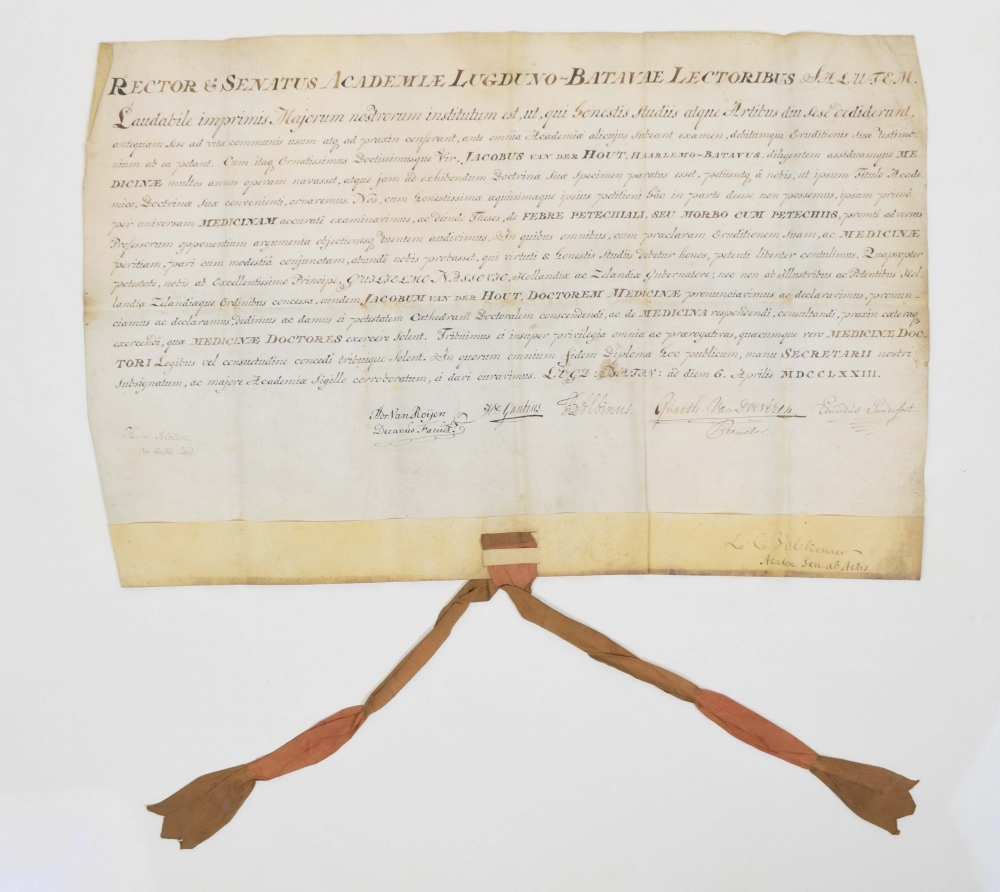 RECTOR & SENATUS ACADEMIÆ LUGDUNO-BATAVAE LECTORIBUS SALUTEM.
Laudabile imprimis Majorum nostrorum institutum est, ut, qui honestis Studiis atque Artibus diu sese dediderunt,
antequam sese ad vitæ communis usum atq, ad praxin conferant, ante omnia Academiæ alicujus subeant examen, debitumque Eruditionis suæ testimo-
nium ab ea petant. Cum itaq, Ornatissimus Doctissimusque Vir, JACOBUS VAN DER HOUT, HAARLEMO-BATAVUS, diligentem assiduamque ME-
DICINÆ multos annos operam navasset, atque jam ad exhibendum Doctrinæ suæ Specimen paratus esset, petiissetq, â nobis, ut ipsum Titulo Acade-
mico, Doctrinæ suæ convenienti, ornaremus. Nos, cum honestissimæ æquissimæque ipsius petitioni hâc in parte deesse non possemus, ipsum primò
per universam MEDICINAM accuratè examinavimus, ac deinde Theses, de FEBRE PETECHIALI, SEU MORBO CUM PETECHIIS, promti adversus
Professorum opponentium argumenta objectionesq, tuentem audivimus. In quibus omnibus, cum praeclaram Eruditionem suam, ac MEDICINÆ
peritiam, pari cum modestiâ conjunctam, abundè nobis probasset, qui virtuti & honestis Studiis debetur honos, petenti libenter contulimus. Quapropter
potestate, nobis ab Excellentissimo Principe, GUILIELMO NASSOVIO, Hollandiæ ac Zelandiæ Gubernatore; nec non ab illustribus ac Potentibus Hol-
landiæ Zelandiæque Ordinibus concessa, eundem JACOBUM VAN DER HOUT, DOCTOREM MEDICINÆ pronunciavimus ac declaravimus, pronun-
ciamus ac declaramus, dedimus ac damus ei potestatem Cathedram Doctoralem conscendendi, ac de MEDICINA respondendi, consultandi, praxin cæteraq,
exercendi, quæ MEDICINÆ DOCTORES exercere solent. Tribuimus ei insuper privilegia omnia ac prærogativas, quæcumque vere MEDICINÆ DOC-
TORI Legibus vel consuetudine concedi tribuique solent. In quorum omnium fidem Diploma hoc publicum, manu SECRETARII nostri
subsignatum, ac majore Academiæ Sigillo corroboratum, ei dari curavimus. LUGD: BATAV: ad diem 6. Aprilis MDCCLXXIII.
Adr. Van Roijen
Decanus Facult.
Gaubius
Gualth. Van Doeveren
Promotor.
Eduardus Sandifort
L. C. Valckenaer
Acad. Sen. ab Actis